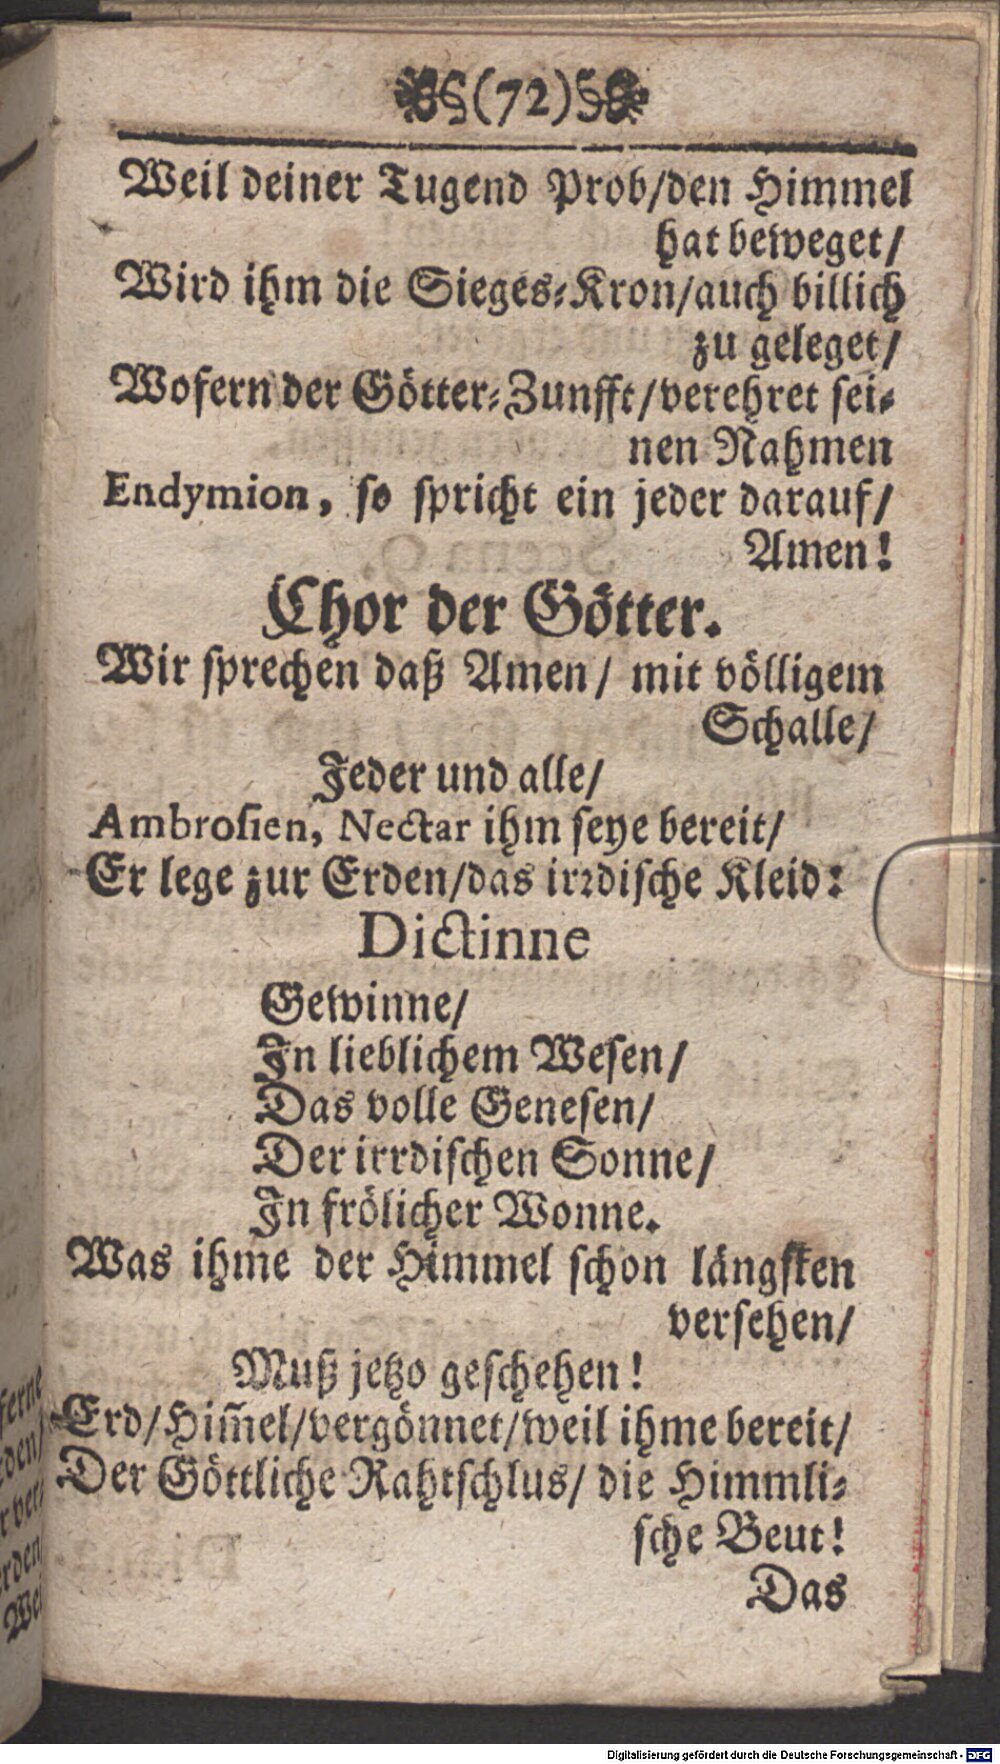 §(72)§
Weil deiner Tugend Prob/den Himmel
hat beweget/
Wird ihm die Sieges-Kron/auch billich
zu geleget/
Wofern der Götter-Zunfft/verehret sei-
nen Nahmen
Endymion, so spricht ein jeder darauf/
Amen!
Chor der Götter.
Wir sprechen daß Amen/ mit völligem
Schalle/
Jeder und alle/
Ambrosien, Nectar ihm seye bereit/
Er lege zur Erden/das irrdische Kleid:
Dictinne
Gewinne/
In lieblichem Wesen/
Das volle Genesen/
Der irrdischen Sonne/
In frölicher Wonne.
Was ihme der Himmel schon längsten
versehen/
Muß jetzo geschehen!
Erd/Him̃el/vergönnet/weil ihme bereit/
Der Göttliche Rahtschlus/ die Himmli-
sche Beut!
Das
ferne
den/
r ver-
rden
Wei
Digitalisierung gefördert durch die Deutsche Forschungsgemeinschaft - DFG